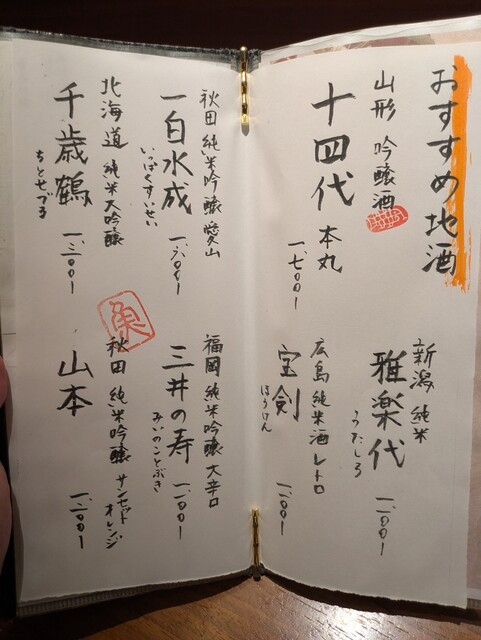 おすすめ地酒
山形 吟醸酒
十四代 本丸
一、七〇〇ー
新潟 純米
雅楽代
うたしろ
一、〇〇〇ー
広島 純米酒 レトロ
宝剣
ほうけん
一、〇〇〇ー
秋田 純米吟醸 愛山
一白水成
いっぱくすいせい
一、六〇〇ー
福岡 純米吟醸 大辛口
三井の寿
みいのことぶき
一、〇〇〇ー
北海道 純米大吟醸
千歳鶴
ちとせづる
一、三〇〇ー
秋田 純米吟醸 サンセットオレンジ
山本
一、二〇〇ー